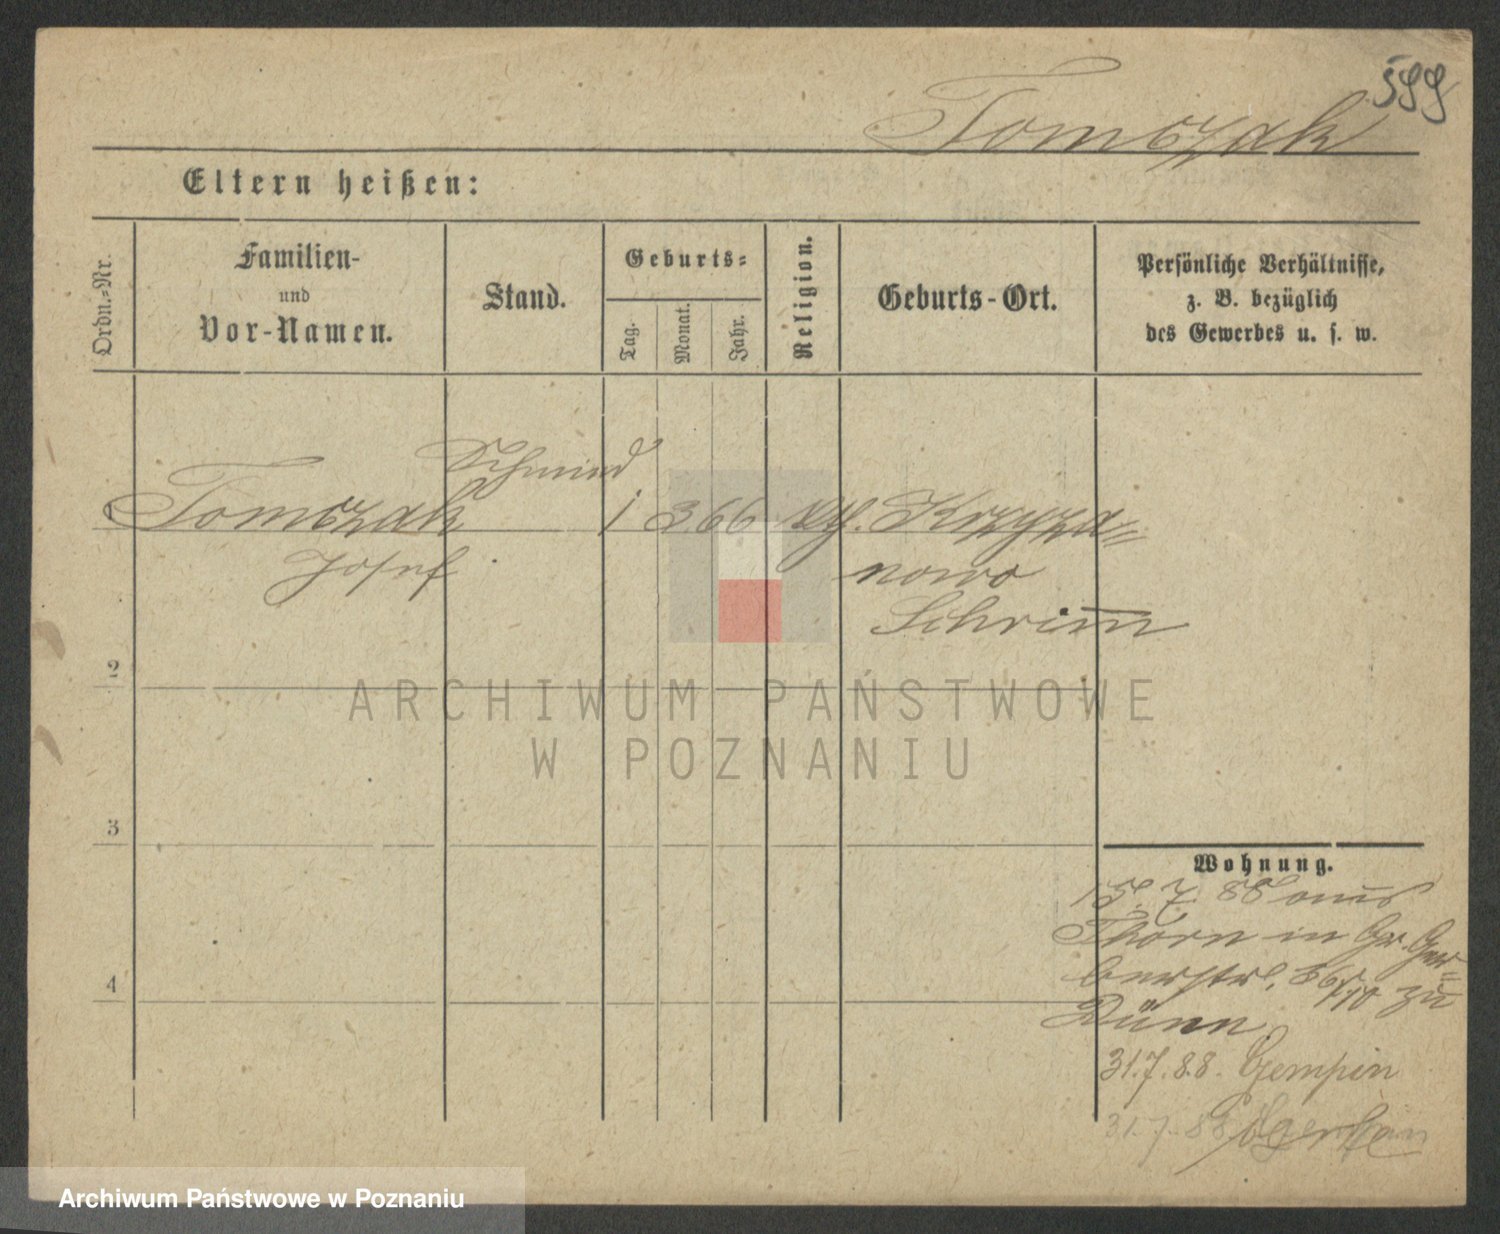 599
Tomczak
Eltern heißen:
Ordn.-Nr.
Familien-
und
Vor-Namen.
Stand.
Geburts-
Tag.
Monat.
Jahr.
Religion.
Geburts-Ort.
Persönliche Verhältnisse,
z. B. bezüglich
des Gewerbes u. s. w.
Schmied
1 Tomczak 1 3 66 kth. Krzyża=
Josef nowo
Schrimm
2
ARCHIWUM PAŃSTWOWE
W POZNANIU
3
Wohnung.
15. 7. 88 aus
Thorn in Gr. Ger=
berstr. zu
4
Dünn
31.7.88. Gempin
31.7.88
Archiwum Państwowe w Poznaniu